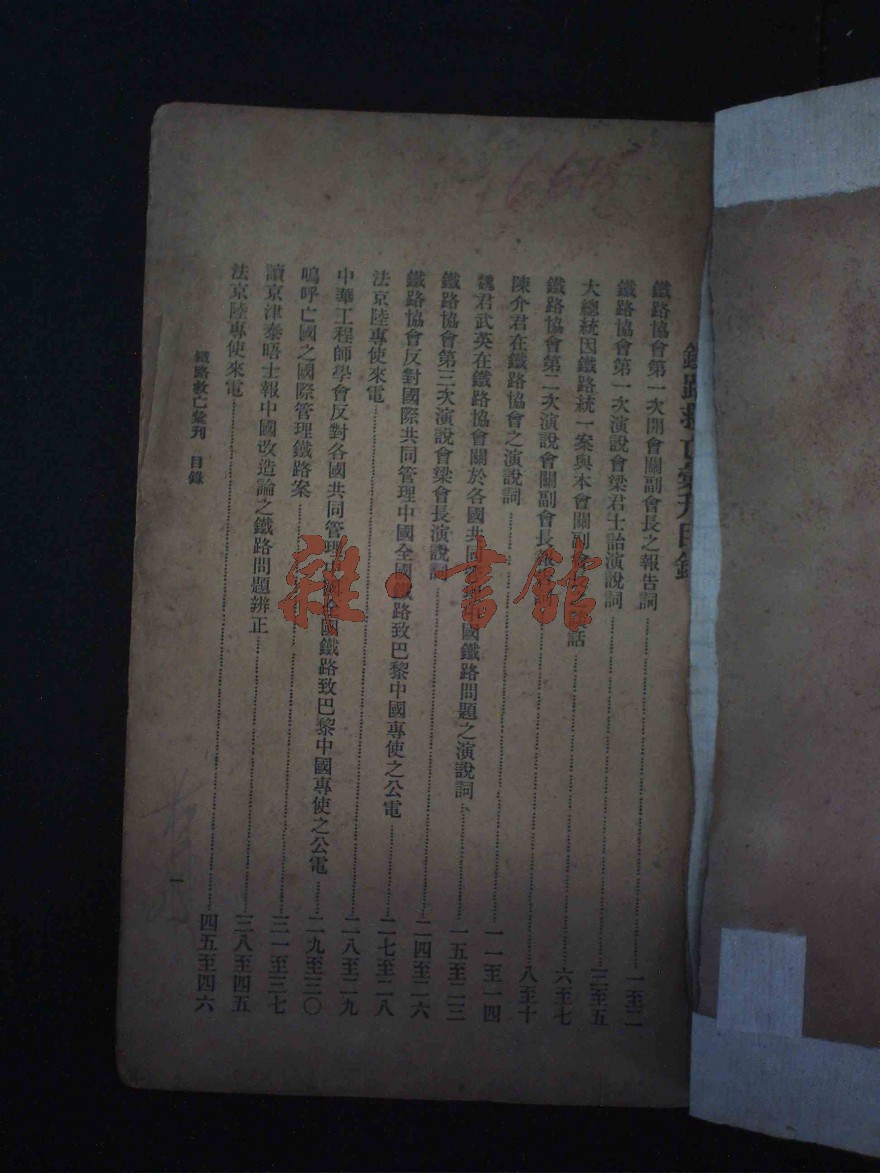 鐵路救亡彙刊目錄
鐵路協會第一次開會關副會長之報告詞……一至二
鐵路協會第一次演說會梁君士詒演說詞……三至五
大總統因鐵路統一案與本會關副話……六至七
鐵路協會第二次演說會關副會長報……八至十
陳介君在鐵路協會之演說詞……一一至一四
魏君武英在鐵路協會關於各國共同國鐵路問題之演說詞……一五至二三
鐵路協會第三次演說會梁會長演說詞……二四至二六
鐵路協會反對國際共同管理中國全國鐵路致巴黎中國專使之公電……二七至二八
法京陸專使來電……二八至二九
中華工程師學會反對各國共同管理國鐵路致巴黎中國專使之公電……二九至三〇
嗚呼亡國之國際管理鐵路案……三一至三七
讀京津泰晤士報中國改造論之鐵路問題辨正……三八至四五
法京陸專使來電……四五至四六
鐵路救亡彙刊 目錄
一
雜·書館